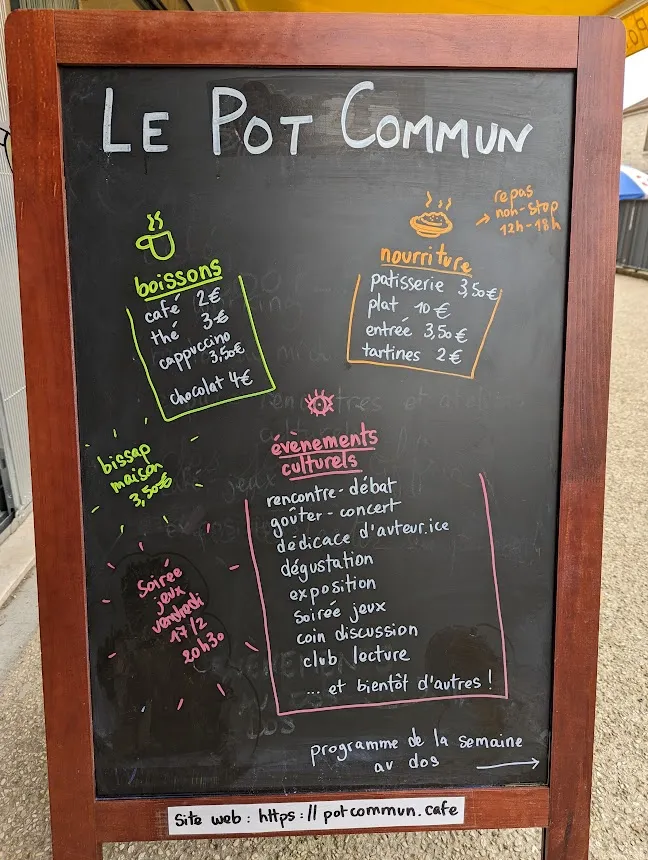 LE POT COMMUN
repas
non-stop
12h-18h
boissons
café 2€
thé 3€
cappuccino
3,50€
chocolat 4€
nourriture
patisserie 3,50€
plat 10€
entrée 3,50€
tartines 2€
bissap
maison
3,50€
évènements
culturels
rencontre-débat
goûter-concert
dédicace d'auteur.ice
dégustation
exposition
Soirée jeux
coin discussion
club lecture
... et bientôt d'autres !
Soirée
jeux
vendredi
17/2
20h30
programme de la semaine
au dos
Site web : https://potcommun.cafe